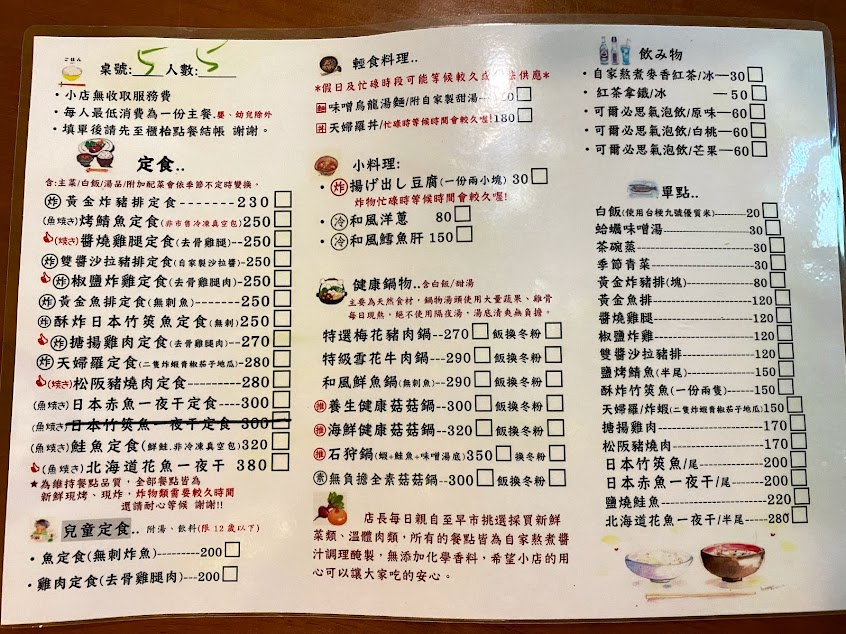 ごはん
桌號:55人數:
・小店無收取服務費
・每人最低消費為一份主餐.嬰、幼兒除外
・填單後請先至櫃枱點餐結帳 謝謝。
定食..
含:主菜/白飯/湯品/附加配菜會依季節不定時變換。
炸 黃金炸豬排定食--------230
(魚焼き)烤鯖魚定食(非市售冷凍真空包)250
(焼き)醬燒雞腿定食(去骨雞腿)-250
雙醬沙拉豬排定食(自家製沙拉醬)-250
炸 椒鹽炸雞定食(去骨雞腿肉)-250
炸 黃金魚排定食(無刺魚)-----250
炸 酥炸日本竹筴魚定食(無刺)250
炸 搪揚雞肉定食(去骨雞腿肉)--270
炸 天婦羅定食(二隻炸蝦青椒茄子地瓜)-280
(焼き)松阪豬燒肉定食--------280
(魚焼き)日本赤魚一夜干定食----300
(魚焼き)日本竹筴魚一夜干定食 300
(魚焼き)鮭魚定食(鮮鮭.非冷凍真空包)320
(魚焼き)北海道花魚一夜干 380
★為維持餐點品質,全部餐點皆為
新鮮現烤、現炸,炸物類需要較久時間
還請耐心等候 謝謝!!
兒童定食..附湯、飲料(限12歲以下)
・魚定食(無刺炸魚)---------200
・雞肉定食(去骨雞腿肉)---200
輕食料理..
*假日及忙碌時段可能等候較久或 供應*
麵 味噌烏龍湯麵/附自家製甜湯---
丼 天婦羅丼/忙碌時等候時間會較久喔!180
小料理:
・炸 揚げ出し豆腐(一份兩小塊) 30
炸物忙碌時等候時間會較久喔!
・冷 和風洋蔥 80
・冷 和風鱈魚肝 150
健康鍋物..含白飯/甜湯
主要為天然食材,鍋物湯頭使用大量蔬果、雞骨
每日現熬,絕不使用隔夜湯,湯底清爽無負擔。
特選梅花豬肉鍋--270 飯換冬粉
特級雪花牛肉鍋---290 飯換冬粉
和風鮮魚鍋(無刺魚)---290 飯換冬粉
推 養生健康菇菇鍋--300 飯換冬粉
推 海鮮健康菇菇鍋 320 飯換冬粉
推 石狩鍋(蝦+鮭魚+味噌湯底)350 換冬粉
素 無負擔全素菇菇鍋--300 飯換冬粉
店長每日親自至早市挑選採買新鮮
菜類、溫體肉類,所有的餐點皆為自家熬煮醬
汁調理醃製,無添加化學香料,希望小店的用
心可以讓大家吃的安心。
飲み物
・自家熬煮麥香紅茶/冰—30
・紅茶拿鐵/冰 —50
・可爾必思氣泡飲/原味—60
・可爾必思氣泡飲/白桃—60
・可爾必思氣泡飲/芒果—60
單點..
白飯(使用台稉九號優質米)--------20
蛤蠣味噌湯--------------------30
茶碗蒸------------------------30
季節青菜----------------------30
黃金炸豬排(塊)----------------80
黃金魚排----------------------120
醬燒雞腿----------------------120
椒鹽炸雞----------------------120
雙醬沙拉豬排------------------120
鹽烤鯖魚(半尾)----------------150
酥炸竹筴魚(一份兩隻)-------150
天婦羅/炸蝦(二隻炸蝦青椒茄子地瓜)150
搪揚雞肉---------------------170
松阪豬燒肉-------------------170
日本竹筴魚/尾----------------200
日本赤魚一夜干/尾-----------200
鹽燒鮭魚---------------------220
北海道花魚一夜干/半尾------280